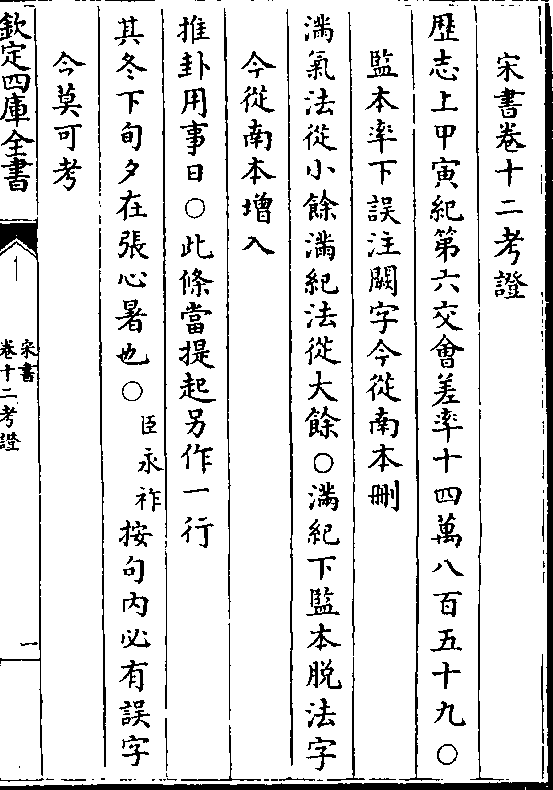 宋書卷十二考證
歴志上甲寅紀第六交會差率十四萬八百五十九○
監本率下誤注闕字今從南本刪
滿氣法從小餘滿紀法從大餘○滿紀下監本脱法字
今從南本增入
推卦用事日○此條當提起另作一行
其冬下旬夕在張心署也○臣永祚按句内必有誤字
今莫可考
欽定四庫全書
宋書
卷十二考證
一